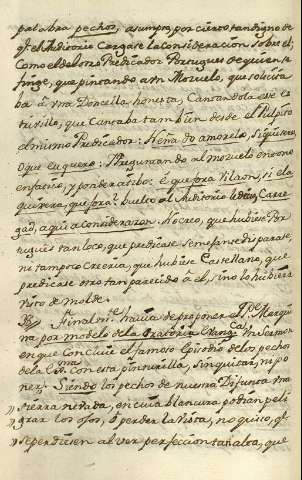 palabra pechos, asumpto por cierto tan digno de
qe. el Auditorio Cargase la consideracion sobre el;
Como el del otro Predicador Portugues de quien se
finge, que pintando a un Mozuelo, que solicita
ba à vna Doncella honesta, Cantandola ese es
truvillo, que Cantaba tambien desde el Pulpito
el mismo Predicador:
o que eu quero: Preguntando al mozuelo
enfatico, y ponderatibo: è que
quisera, que fora? buelto al Auditorio le decia, Carre
gad, aqui a Considerazon. No creo, que hubiese Por
tugues tan loco, que predicase semejante disparate,
ni tampoco Creeria, que hubiese Castellano, que
predicase otro tan parecido â el, sino lo hubiera
visto de molde.
Finalmte. havia de proponer el Pe. Marqui
na por modelo de la Oratoria Evangca. Vn Sermon
en que Concluie el famoso Episodio de los pechos
de la con esta pinturilla, sin quitar, ni po
ner. Siendo los pechos de nuestra Difunta vna
» sierra nevada, en cuia blancura podian peli
» grar los ojos, ò perder la vista, no quiso, qe.
» se perdiesen al ver perfeccion tan alta, que